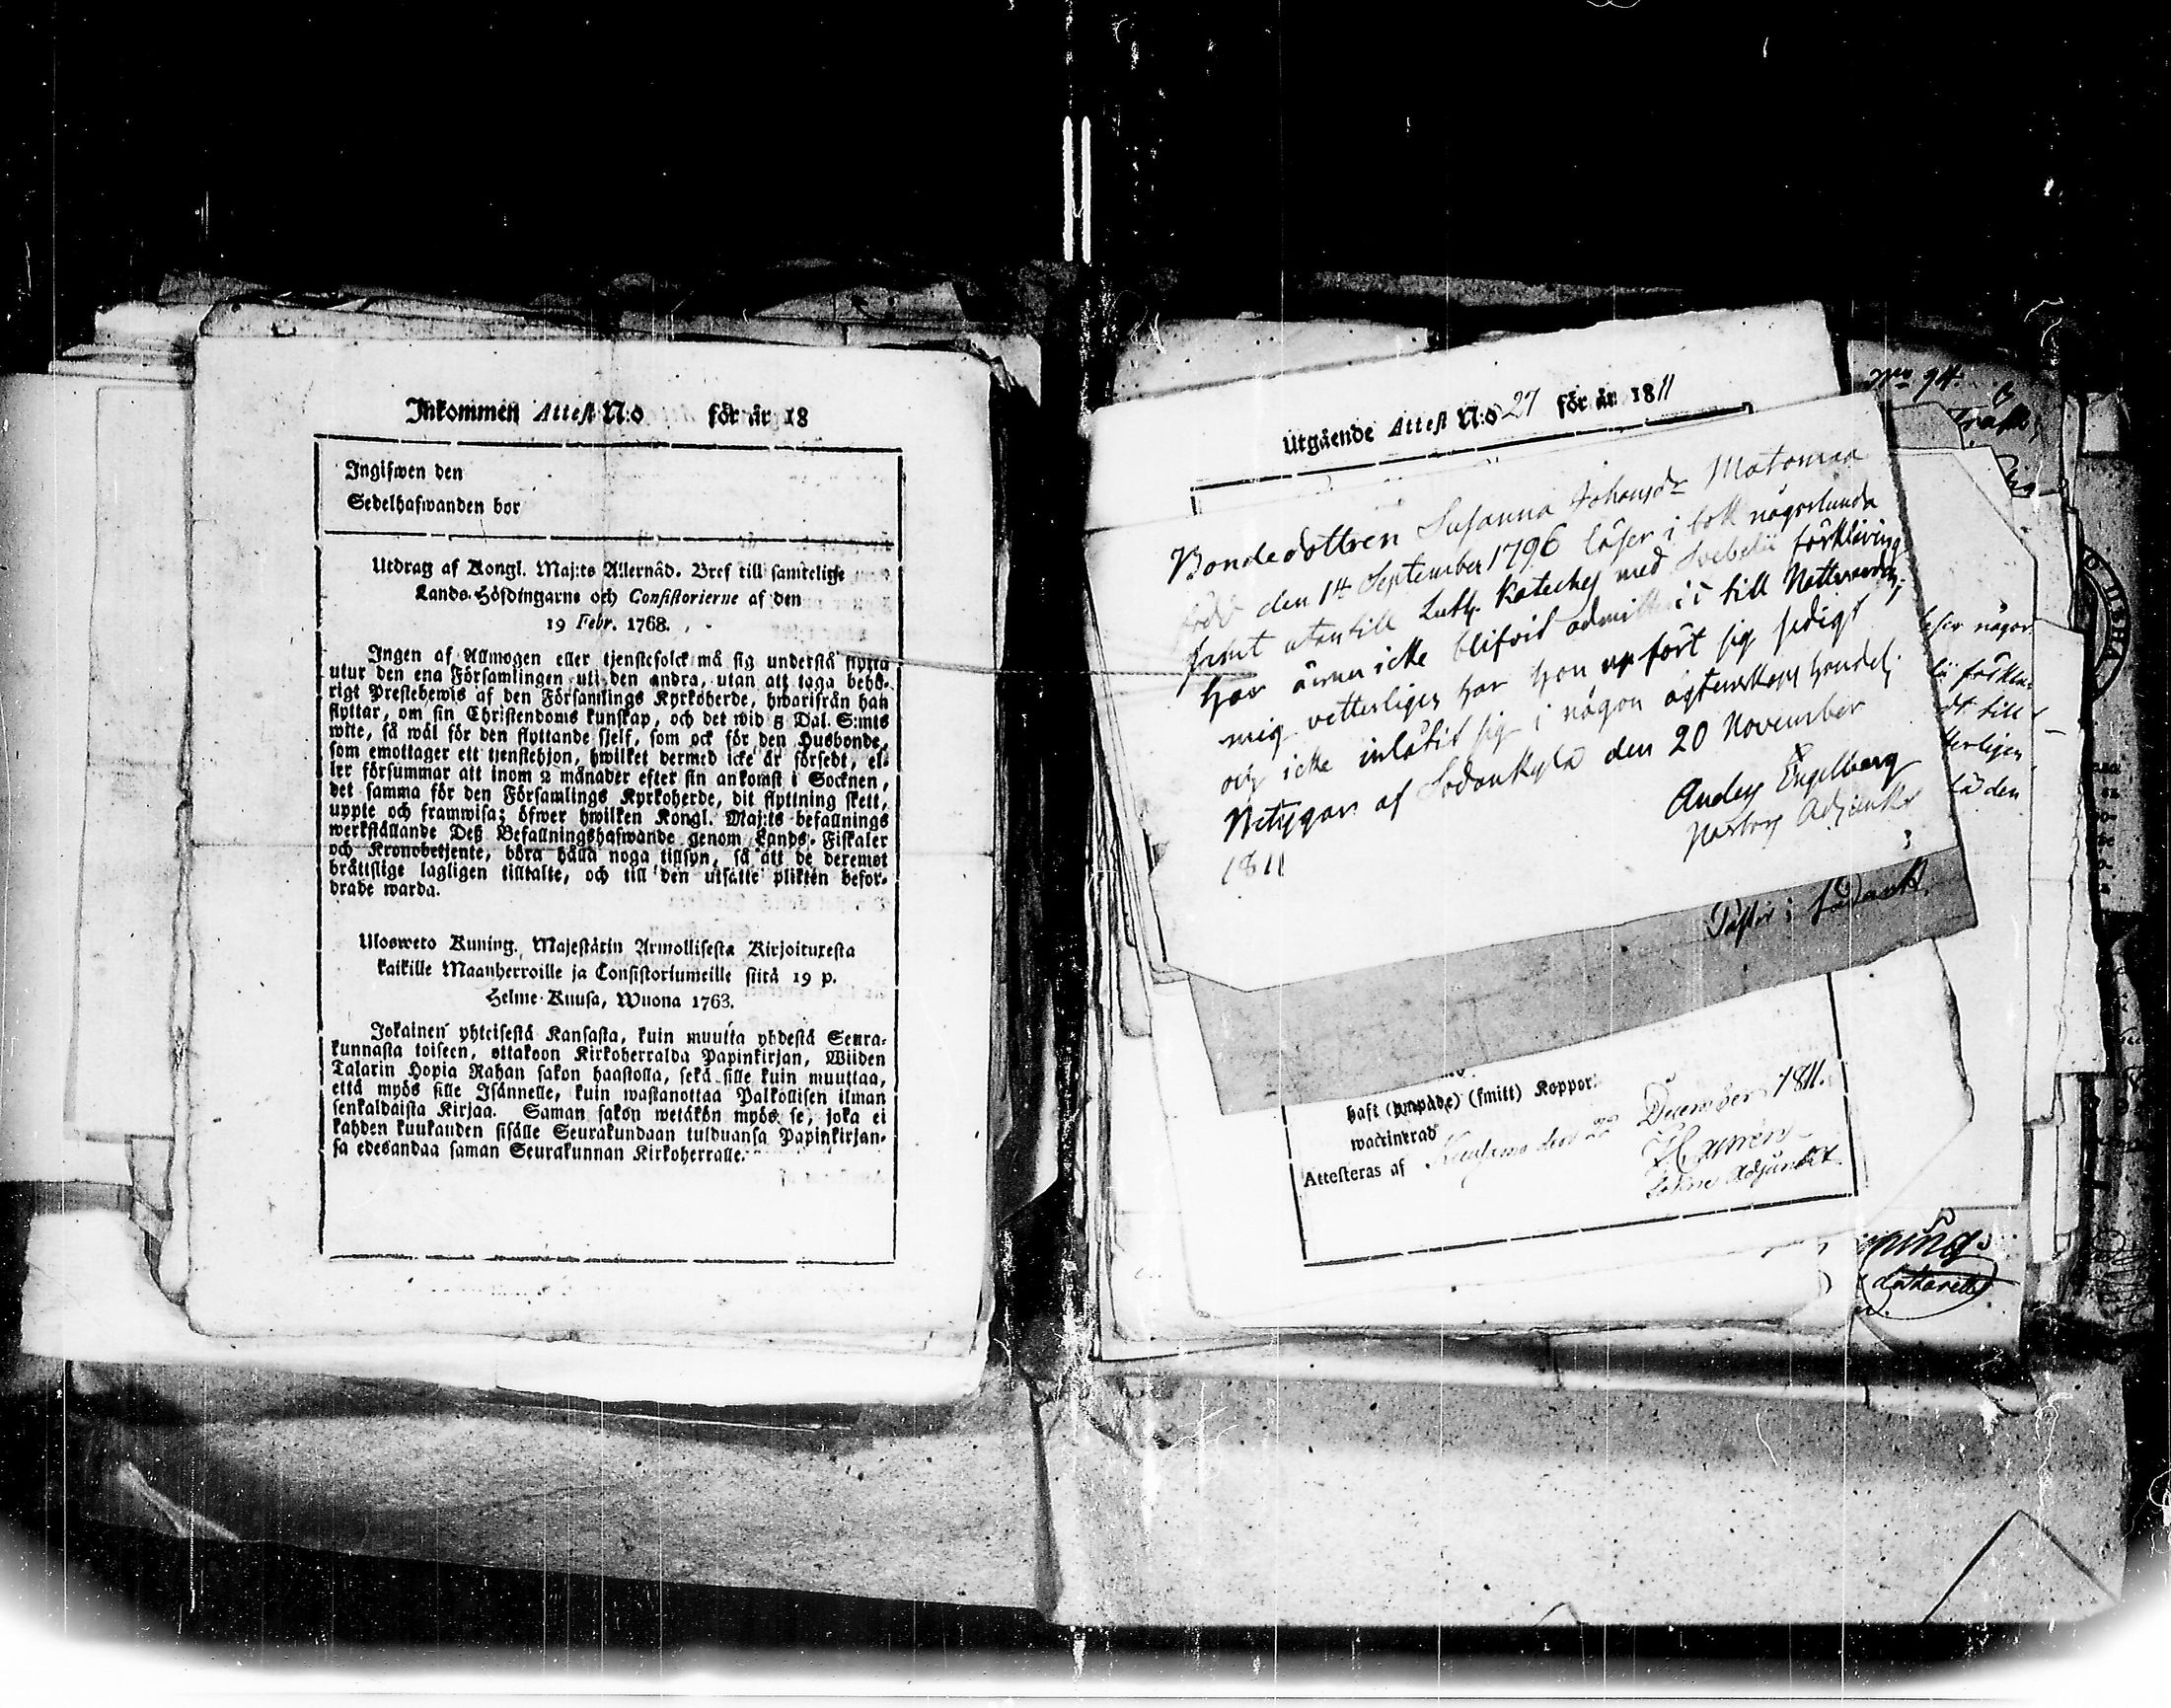 Inkommen Attest N:o för år 18
Ingifwen den
Sedelhafwanden bor
Utdrag af Kongl. Maj:ts Allernåd. Bref till samtelige
Lands-Höfdingarne och Consistorierne af den
19 Febr. 1768.
Ingen af Allmogen eller tjenstefolck må sig understå flytta
utur den ena Församlingen uti den andra, utan att taga behö-
rigt Prestebewis af den Församlings Kyrkoherde, hwarifrån han
flyttar, om sin Christendoms kunskap, och det wid 5 Dal. S:mts
wite, så wäl för den flyttande sjelf, som ock för den Husbonde,
som emottager ett tjenstehjon, hwilket dermed icke är försedt, el-
ler försummar att inom 2 månader efter sin ankomst i Socknen,
det samma för den Församlings Kyrkoherde, dit flyttning skett,
uppte och framwisa; öfwer hwilken Kongl. Maj:ts befallnings
werkställande Deß Befallningshafwande genom Lands-Fiskaler
och Kronobetjente, böra hålla noga tillsyn, så att de deremot
bråttslige lagligen tilltalte, och till den utsatte plikten befor-
drade warda.
Ulosweto Kuning. Majestätin Armollisesta Kirjoituxesta
kaikille Maanherroille ja Consistoriumeille siitä 19 p.
Helme-Kuusa, Wuona 1763.
Jokainen yhteisestä Kansasta, kuin muutta yhdestä Seura-
kunnasta toiseen, ottakoon Kirkoherralda Papinkirjan, Wiiden
Talarin Hopia Rahan sakon haastolla, sekä sille kuin muuttaa,
että myös sille Isännelle, kuin wastanottaa Palkollisen ilman
senkaldaista Kirjaa. Saman sakon wetäkön myös se, joka ei
kahden kuukauden sisälle Seurakundaan tulduansa Papinkirjan-
sa edesandaa saman Seurakunnan Kirkoherralle.
Utgående Attest N:o 27 för år 1811
Bondedottren Susanna Johansdr Matomaa
född den 14 September 1796 läser i bok någorlunda
samt utantill Luth. Kateches med Svebelii förklaring
har ännu icke blifvit admitterad till Nattvarden;
mig vetterligen har hon uppfört sig sedigt
och icke inlåtit sig i någon ägtenskaps handel;
Betygar af Sodankylä den 20 November
1811
Anders Engelberg
Pastors Adjunkt
i
Pastor i Sodank
haft (ympade) (smitt) Koppor.
waccinerad
Attesteras af Kuusamo den 22 December 1811.
Adjunct
Nro 94.
läser någor
lii förkla
dt till
tterligen
lä den